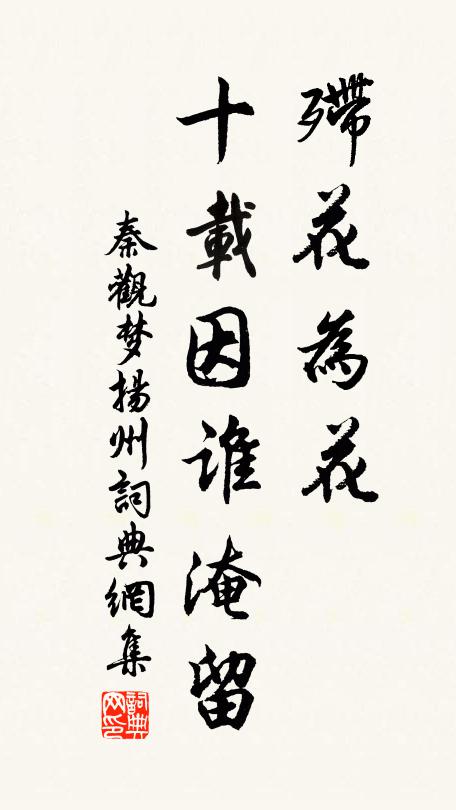 殢花為花
十載因谁淹留
秦觀梦揚州詞典網集
詞典网印